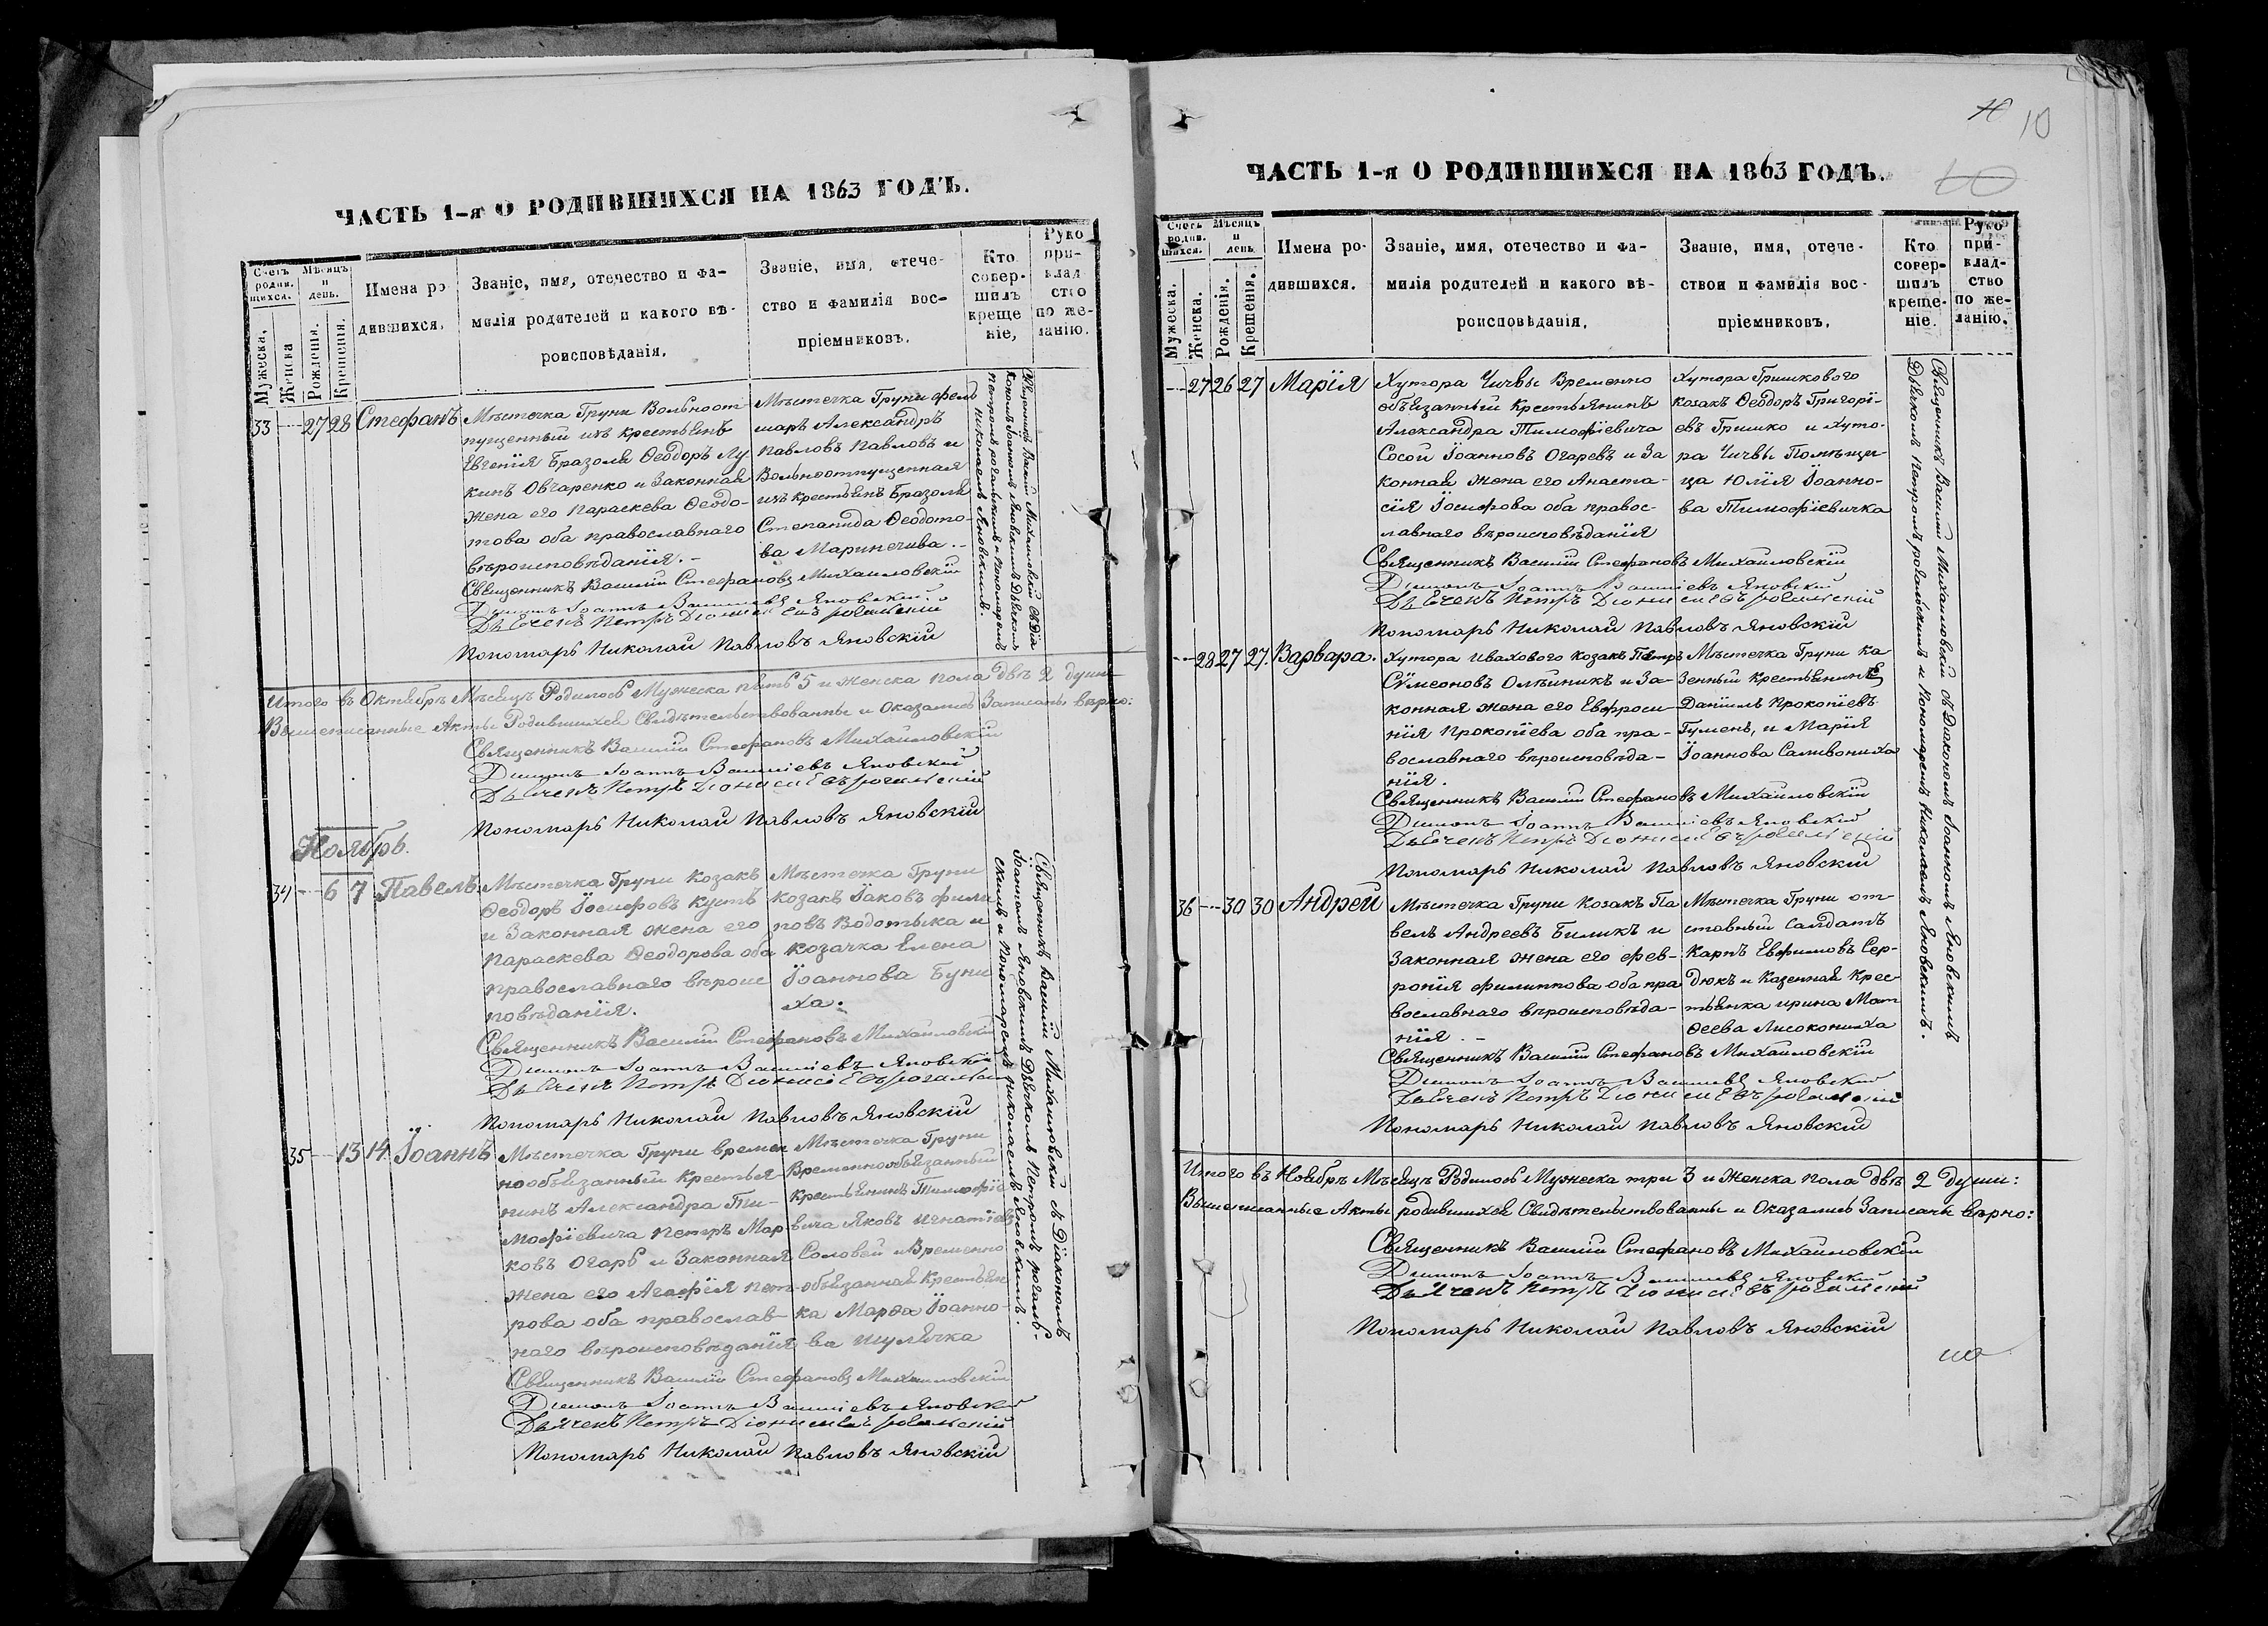 ЧАСТЬ 1-я О РОДИВШИХСЯ НА 1863 ГОДЪ.
Счетъ родив. щихся.
Мѣсяцъ и день.
Имена ро дившихся.
Званіе, имя, отечество и фа-
милія родителей и какого вѣ-
роисповѣданія.
Званіе, имя, отече-
ство и фамилія вос-
пріемниковъ.
Кто совер- шилъ креще ніе,
Руко при- клад ство по же- ланію.
Мужеска.
Женска
Рожденія.
Крещенія.
33 27 28 Стефанъ
Мѣстечка Груни Вольноот-
пущенный изъ крестьянъ
Евгенія Бразоля Ѳеодоръ Лу
кинъ Овчаренко и Законная
жена его Параскева Ѳеодо-
това оба православнаго
вѣроисповѣданія.-
Мѣстечка Груни фель
шаръ Александръ
Павловъ Павловъ и
Вольноотпущенная
изъ крестьянъ Бразоля
Степанида Ѳеодото-
ва Маринечива.-
Священникъ Василій Михаиловскій съ Діа
кономъ Іоанномъ Яновскимъ Дьячкомъ
Петромъ рогальскимъ и Пономаремъ
Николаемъ Яновскимъ.
Священникъ Василій Стефановъ Михаиловскій
Діаконъ Іоаннъ Василіевъ Яновскій
Дьячекъ Петръ Діонисіевъ рогальскій
Пономарь Николай Павловъ Яновскій
Итого въ Октябрѣ Мѣсяцѣ Родилось Мужеска пять 5 и женска пола двѣ 2 души
Вышеписанные Акты Родившихся Свидѣтельствованны и Оказались Записаны вѣрно:
Священникъ Василій Стефановъ Михаиловскій
Діаконъ Іоаннъ Василіевъ Яновскій
Дьячекъ Петръ Діонисіевъ рогальскій
Пономарь Николай Павловъ Яновскій
Ноябрь.
34 6 7 Павелъ
Мѣстечка Груни Козакъ
Ѳеодоръ Іосифовъ Кустъ
и Законная жена его
Параскева Ѳеодорова оба
православнаго вѣроис
повѣданія.
Мѣстечка Груни
козакъ Іаковъ фили
повъ Водотыка и
козачка Елена
Іоаннова Буни
ха.
Священникъ Василій Михаиловскій съ Діакономъ
Іоанномъ Яновскимъ Дьячкомъ Петромъ рогаль-
скимъ и Пономаремъ Николаемъ Яновскимъ.
Священникъ Василій Стефановъ Михаиловскій
Діаконъ Іоаннъ Василіевъ Яновскій
Дьячекъ Петръ Діонисіевъ рогальскій
Пономарь Николай Павловъ Яновскій
35 13 14 Іоаннъ
Мѣстечка Груни времен
нообязанный Крестья-
нинъ Александра Ти-
мофіевича Петръ Мар
ковъ Огарь и Законная
жена его Агафія Пет-
рова оба православ-
наго вѣроисповѣданія
Мѣстечка Груни
Временнообязанный
Крестьянинъ Тимофіе
вича Яковъ Игнатіевъ
Соловей и Временно
обязанная Крестьян
ка Марѳа Іоанно-
ва Шулячка
Священникъ Василій Стефановъ Михаиловскій
Діаконъ Іоаннъ Василіевъ Яновскій
Дьячекъ Петръ Діонисіевъ рогальскій
Пономарь Николай Павловъ Яновскій
10
ЧАСТЬ 1-я О РОДИВШИХСЯ НА 1863 ГОДЪ.
Счетъ родив. шихся.
Мѣсяцъ и день.
Имена ро- дившихся.
Званіе, имя, отечество и фа-
милія родителей и какого вѣ-
роисповѣданія.
Званіе, имя, отече-
ствои и фамилія вос-
пріемниковъ.
Кто совер- шилъ креще- ніе.
Руко при- клад- ство по же- ланію.
Мужеска.
Женска.
Рожденія.
Крещенія.
27 26 27 Марія
Хутора Чичвы Временно
обязанный Крестьянинъ
Александра Тимофіевича
Сосой Іоанновъ Огаревъ и За
конная жена его Анаста-
сія Іосифова оба правос-
лавнаго вѣроисповѣданія
Хутора Гришкового
козакъ Ѳеодоръ Григорі-
евъ Гришко и хуто-
ра Чичвы Помѣщи-
ца Юлія Іоанно-
ва Тимофіевичка
Священникъ Василій Михаиловскій съ Діакономъ Іоанномъ Яновскимъ
Дьячкомъ Петромъ рогальскимъ и Пономаремъ Николаемъ Яновскимъ.
Священникъ Василій Стефановъ Михаиловскій
Діаконъ Іоаннъ Василіевъ Яновскій
Дьячекъ Петръ Діонисіевъ рогальскій
Пономарь Николай Павловъ Яновскій
28 27 27. Варвара.
Хутора Ивахового козакъ Петръ
Сѵмеоновъ Олѣйникъ и За-
конная жена его Евфроси
нія Прокопіева оба пра-
вославнаго вѣроисповѣда-
нія.
Мѣстечка Груни Ка
зенный Крестьянинъ
Даніилъ Прокопіевъ
Гуменъ, и Марія
Іоаннова Саливониха
Священникъ Василій Стефановъ Михаиловскій
Діаконъ Іоаннъ Василіевъ Яновскій
Дьячекъ Петръ Діонисіевъ рогальскій
Пономарь Николай Павловъ Яновскій
36 30 30 Андрей
Мѣстечка Груни Козакъ Па
велъ Андреевъ Биликъ и
Законная жена его фев-
ронія филиппова оба пра
вославнаго вѣроисповѣда-
нія.-
Мѣстечка Груни от-
ставный Салдатъ
Карпъ Евфимовъ Сер-
дюкъ и Казенная Крес-
тьянка Ирина Мат
ѳеева Лисокониха
Священникъ Василій Стефановъ Михаиловскій
Діаконъ Іоаннъ Василіевъ Яновскій
Дьячекъ Петръ Діонисіевъ рогальскій
Пономарь Николай Павловъ Яновскій
Итого въ Ноябрѣ Мѣсяцѣ Родилось Мужеска три 3 и Женска пола двѣ 2 души:
Вышеписанные Акты родившихся Свидѣтельствованны и Оказались Записаны вѣрно:
Священникъ Василій Стефановъ Михаиловскій
Діаконъ Іоаннъ Василіевъ Яновскій
Дьячекъ Петръ Діонисіевъ рогальскій
Пономарь Николай Павловъ Яновскій